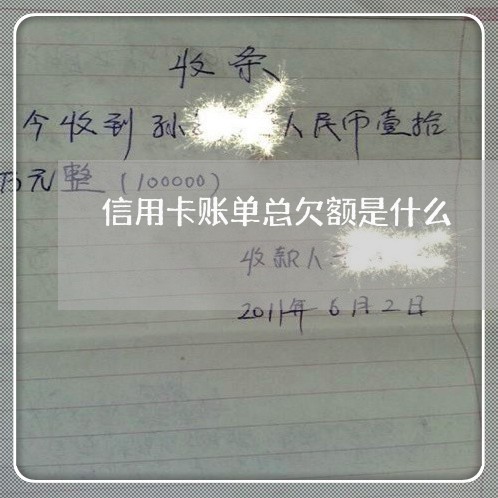 收条
今收到孙 人民币壹拾
万元整（100000）
信用卡账单总欠额是什么
收款人
2011年6月2日